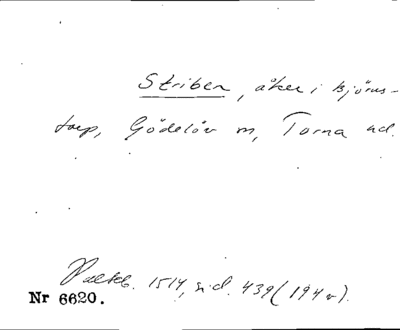 Striben, åker i Björns-
torp, Gödelöv sn, Torna hd.
1514, sid. 439 (194 v).
Nr 6620.